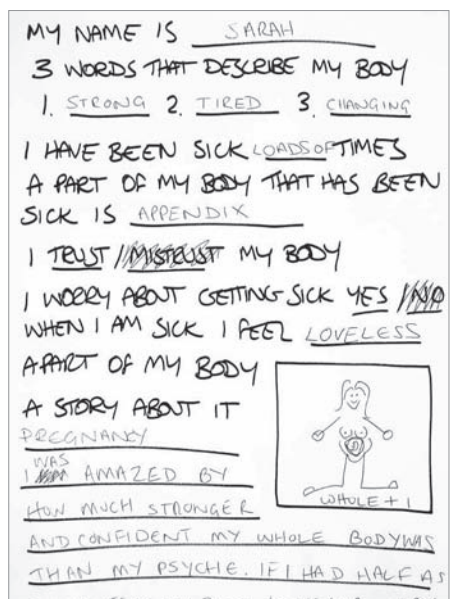 MY NAME IS SARAH
3 WORDS THAT DESCRIBE MY BODY
1. STRONG 2. TIRED 3. CHANGING
I HAVE BEEN SICK LOADS OF TIMES
A PART OF MY BODY THAT HAS BEEN
SICK IS APPENDIX
I TRUST / MISTRUST MY BODY
I WORRY ABOUT GETTING SICK YES / NO
WHEN I AM SICK I FEEL LOVELESS
A PART OF MY BODY
A STORY ABOUT IT
PREGNANCY
I WAS AMAZED BY
HOW MUCH STRONGER
WHOLE + 1
AND CONFIDENT MY WHOLE BODY WAS
THAN MY PSYCHE. IF I HAD HALF AS